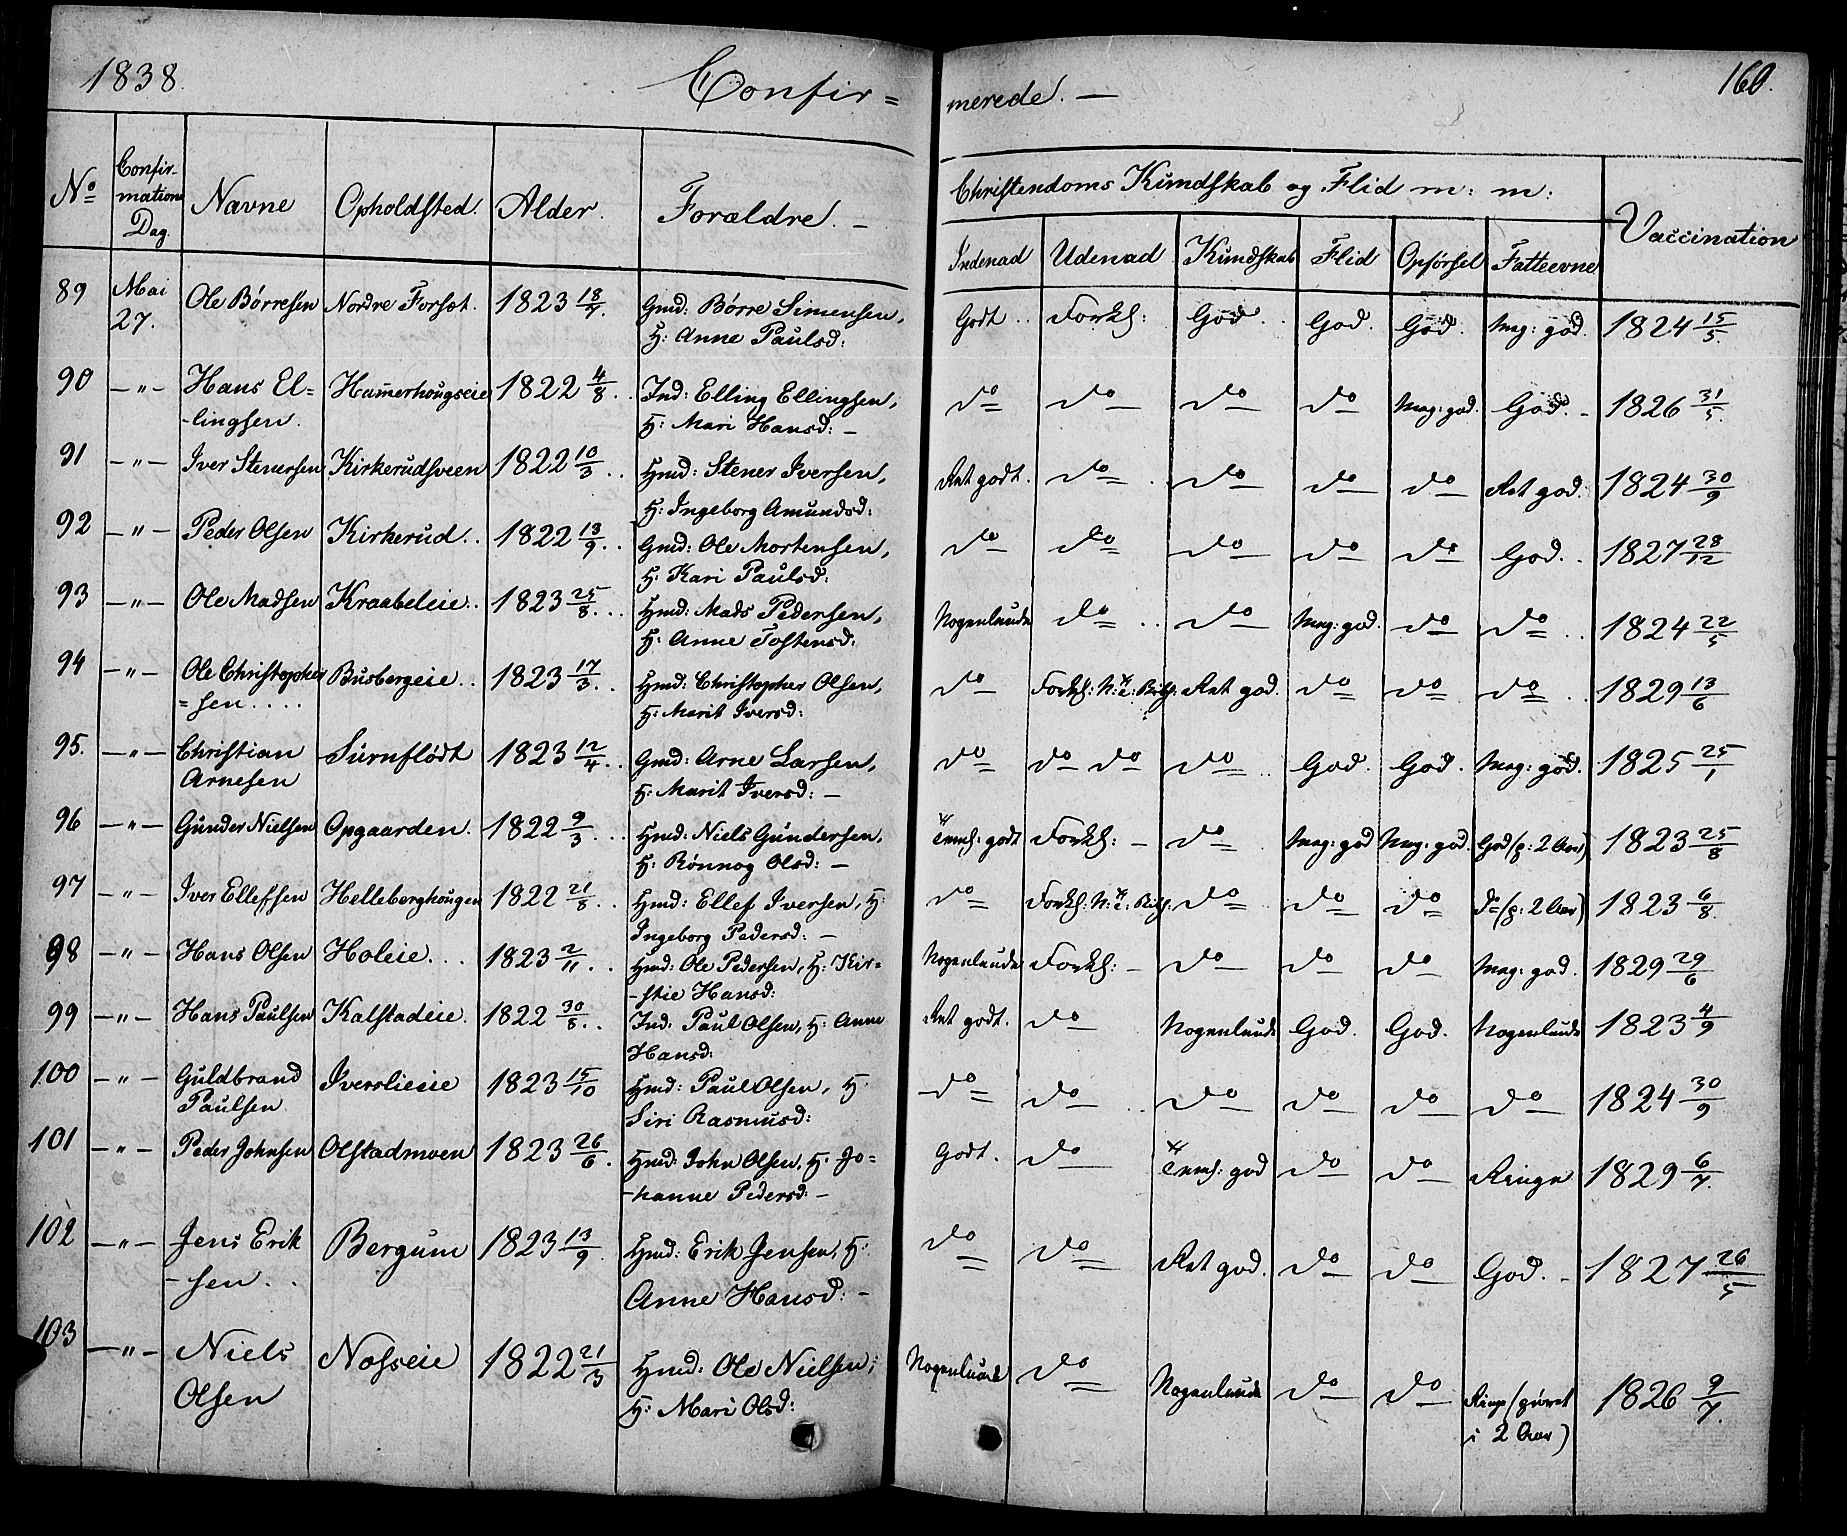 1838. Confir=
merede. — 160.
No Confir-mations Dag. Navne Opholdsted. Alder. Forældre. —
Christendoms Kundskab og Flid m: m: Vaccination
Indenad Udenad Kundskab Flid Opførsel Fatteevne
89 Mai 27. Ole Børresen Nordre Forset. 1823 18/7. Gmd: Børre Simensen, H: Anne Paulsd: Godt.. Forkl: God.. God. God. Meg: god. 1824 15/5.
90 —"— Hans El=-lingsen. Hamerhougseie 1822 4/8.. Ind: Elling Ellingsen, H: Mari Hansd: — do do do do Meg: god. God. — 1826 31/5.
91 —"— Iver Stenersen Kirkerudsveen 1822 10/3.. Hmd: Stener Iversen, H: Ingeborg Amundsd: Ret godt. do do do do Ret god. 1824 30/9
92 —"— Peder Olsen Kirkerud.. 1822 13/9.. Gmd: Ole Mortensen, H: Kari Paulsd: do do do do do God.. 1827 28/12
93 —"— Ole Madsen Kraabeleie.. 1823 25/8... Hmd: Mads Pedersen, H: Anne Tostensd: Nogenlunde do.. do Meg: god. do do.. 1824 22/5
94 —"— Ole Christopher=sen.... Busbergeie.. 1823 17/3.. Hmd: Christopher Olsen, H: Marit Iversd: do Forkl: Ret god. do do do.. 1829 13/6
95. —"— Christian Arnesen Surnflødt 1823 12/4.. Gmd: Arne Larsen, H: Marit Iversd: — do do do do.. God. God. Meg: god. 1825 25/1
96 —"— Gunder Nielsen Opgaarden. 1822 9/3... Hmd: Niels Gundersen, H: Rønnog Olsd: — Teml: godt Forkl: — do Meg: god Meg: god. God (p: 2 Aar) 1823 25/8
97 —"— Iver Ellefsen Helleberghougen 1822 21/8.. Hmd: Ellef Iversen, H: Ingeborg Pedersd: — do Forkl: do do do do (p: 2 Aar) 1823 6/8.
98 —"— Hans Olsen Holeie... 1823 2/11.. Hmd: Ole Pedersen, H: Kir=-stie Hansd: Nogenlunde Forkl: — do do do Meg: god. 1829 29/6
99 —"— Hans Paulsen Kalstadeie. 1822 30/8.. Ind: Paul Olsen, H: Anne Hansd: Ret godt. do Nogenlunde God. God. Nogenlunde 1823 4/9
100 —"— Guldbrand Paulsen Iverslieeie 1823 15/10 Hmd: Paul Olsen, H: Siri Rasmusd: do do.. do do do do 1824 30/9
101 —"— Peder Johnsen Olstadmoen 1823 26/6. Hmd: John Olsen, H: Jo=-hanne Pedersd: — Godt. do Teml: god do do Ringe 1829 6/7.
102 —"— Jens Erik-sen.. Bergum 1823 13/9. Hmd: Erik Jensen, H: Anne Hansd: — do do Ret god. do do God. — 1827 26/5
103 —"— Niels Olsen Nosseie 1822 21/3 Hmd: Ole Nielsen, H: Mari Olsd: Nogenlunde do Nogenlunde do do Ringe (prøvet i 2 Aar) 1826 9/7.